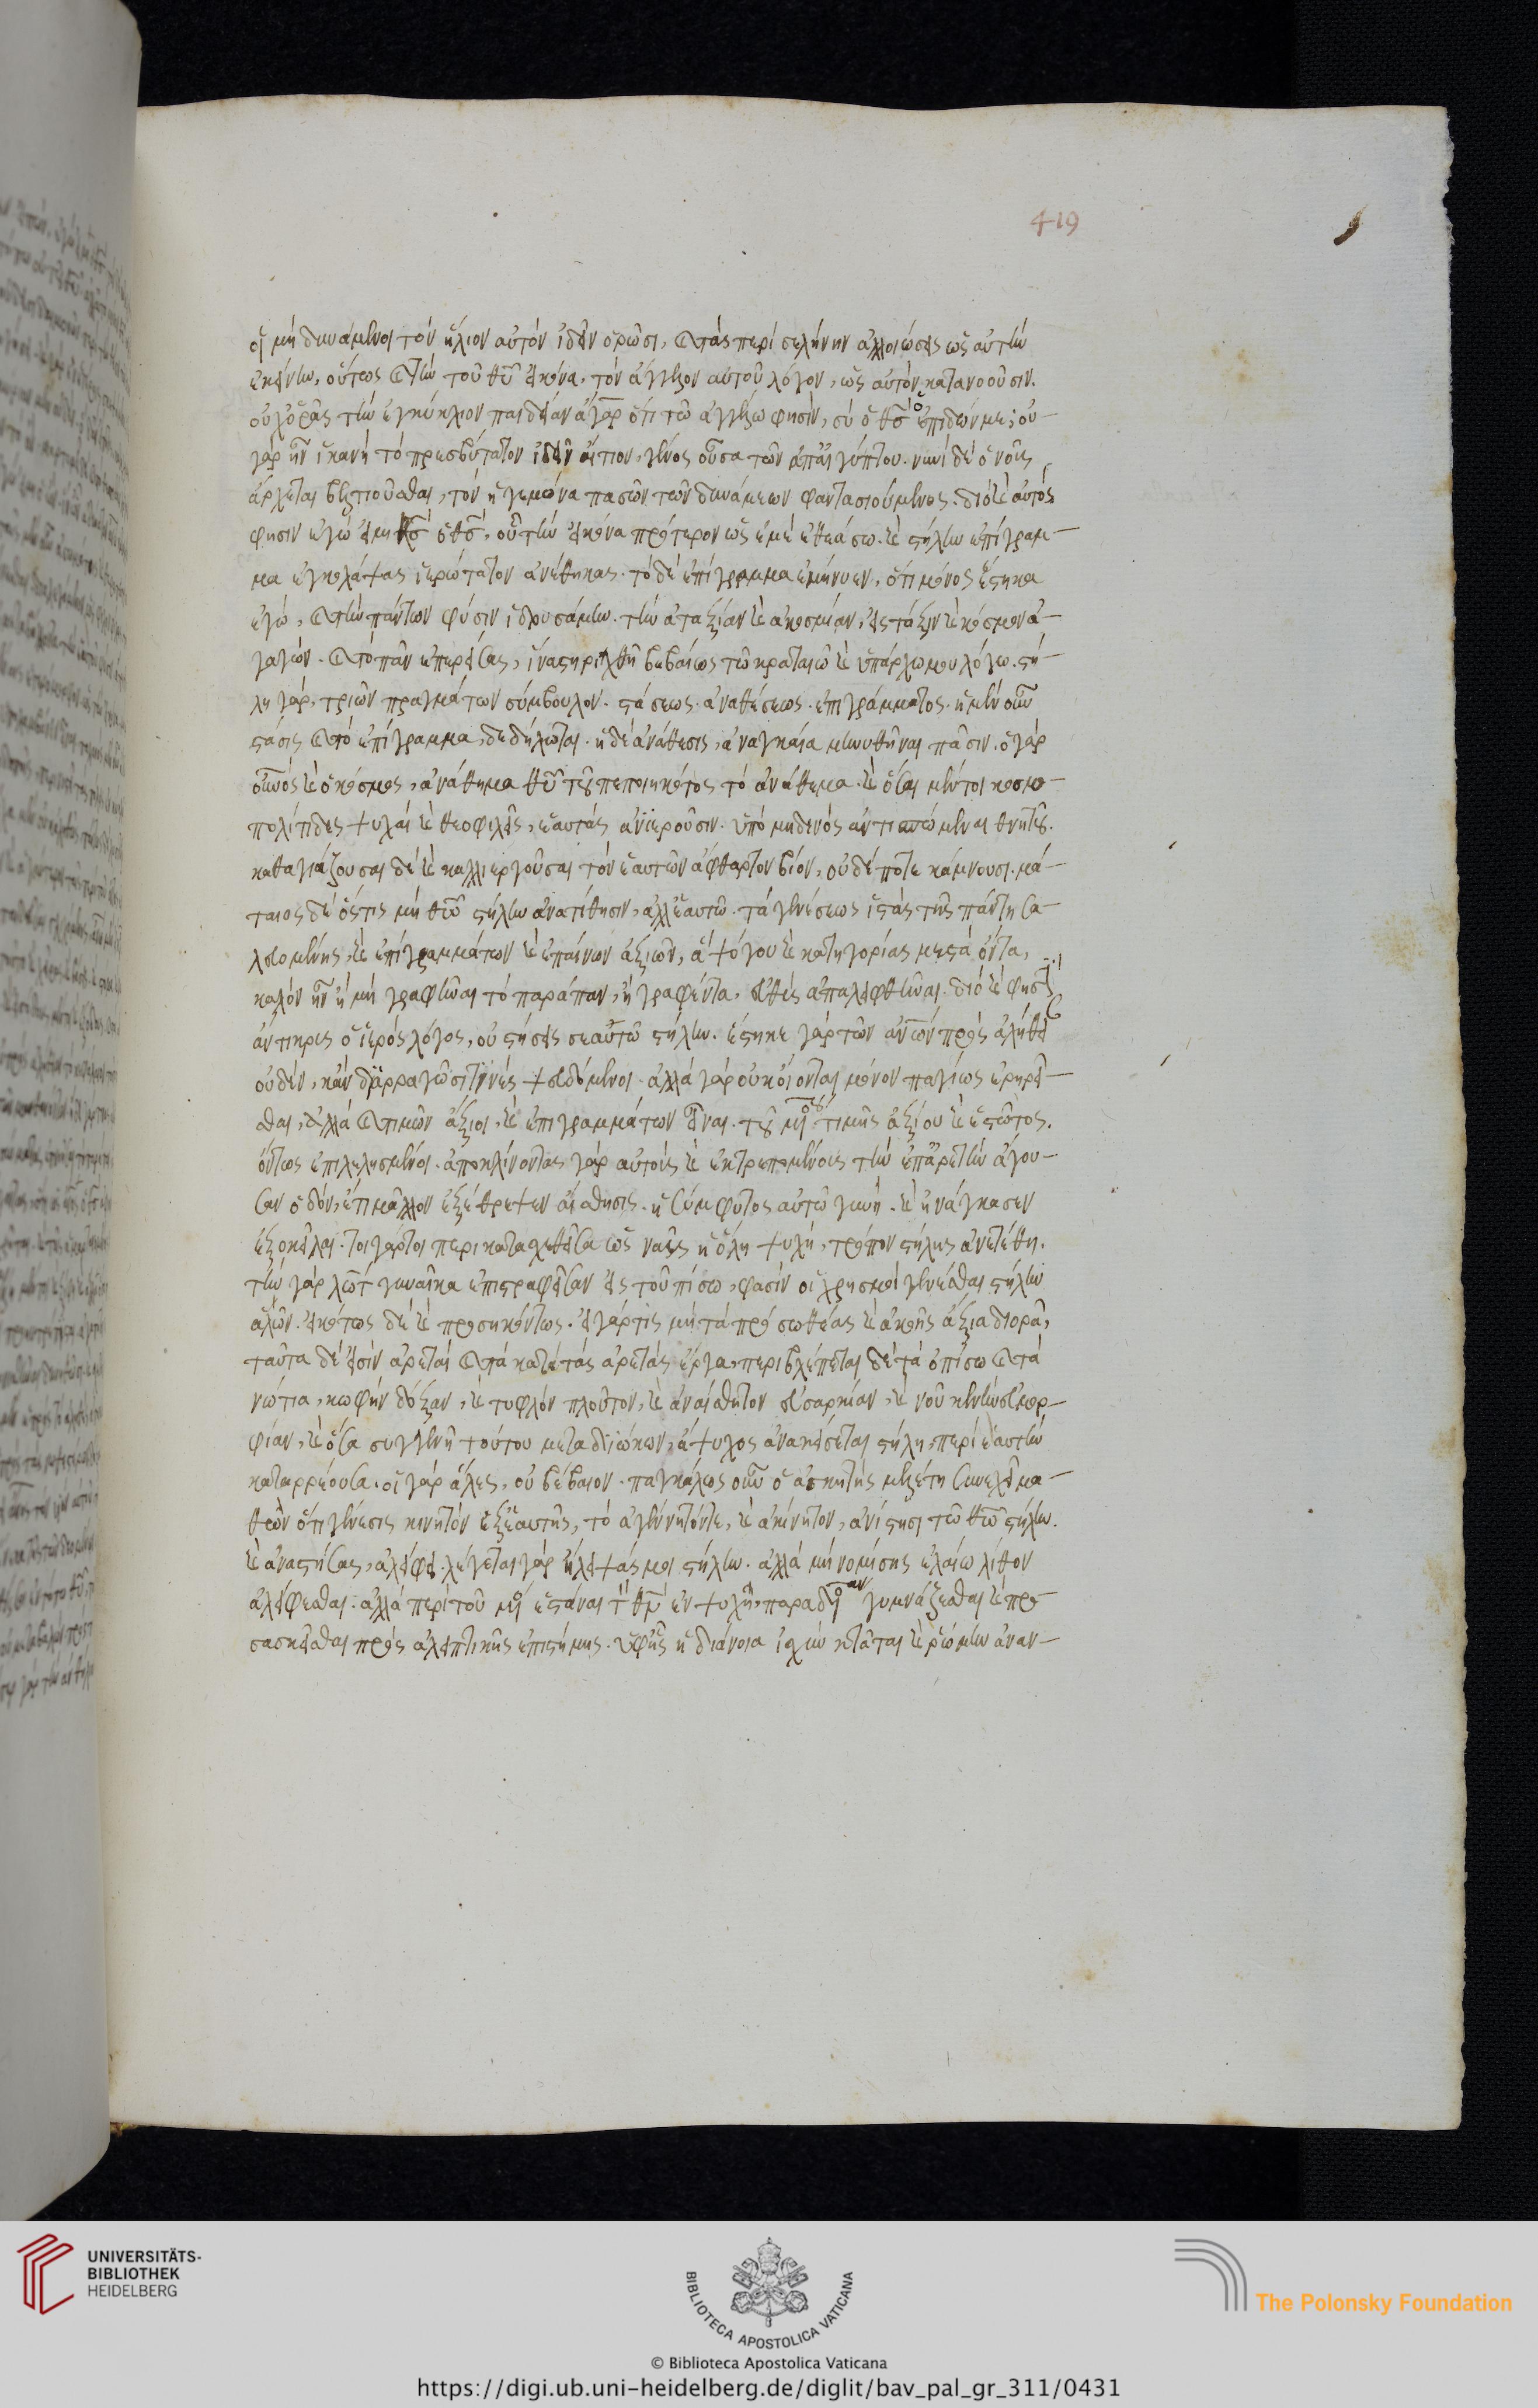 419
οἱ μὴ δυνάμενοι τὸν ἥλιον αὐτὸν ἰδεῖν ὁρῶσι, καὶ τὰς περὶ σελήνην ἀλλοιώσεις ὡς αὐτὴν
ἐκείνην, οὕτως καὶ τὴν τοῦ θυ εἰκόνα, τὸν ἄγγελον αὐτοῦ λόγον, ὡς αὐτὸν κατανοοῦσιν.
οὐχ ὁρᾶς τὴν ἐγκύκλιον παιδείαν ἄγαρ ὅτι τῶ ἀγγέλω φησὶν, σὺ ὁ θσ ὁ ἐπιδών με; οὐ-
γὰρ ἦν ἱκανὴ τὸ πρεσβύτατον ἰδεῖν αἴτιον, γένος οὖσα τῶν ἀπ' αἰγύπτου. νυνὶ δὲ ὁ νοῦς
ἄρχεται βελτιοῦσθαι, τὸν ἡγεμόνα πασῶν τῶν δυνάμεων φαντασιούμενος. διὸ καὶ αὐτός
φησιν ἐγώ εἰμι θσ ὁ θσ, οὗ τὴν εἰκόνα πρότερον ὡς ἐμὲ ἐθεάσω. καὶ στήλην ἐπίγραμ-
μα ἐγκολάψας ἱερώτατον ἀνέθηκας. τὸ δὲ ἐπίγραμμα ἐμήνυεν, ὅτι μόνος ἕστηκα
ἐγώ, καὶ τὴν πάντων φύσιν ἱδρυσάμην. τὴν ἀταξίαν καὶ ἀκοσμίαν, εἰς τάξιν καὶ κόσμον ἀ-
γαγών. καὶ τὸ πᾶν ἐπερείσας, ἵνα στηριχθῆ βεβαίως τῶ κραταιῶ καὶ ὑπάρχω μου λόγω. στή-
λη γὰρ, τριῶν πραγμάτων σύμβουλον. στάσεως. ἀναθέσεως. ἐπιγράμματος. ἡ μὲν οὖν
στάσις καὶ τὸ ἐπίγραμμα, δεδήλωται. ἡ δὲ ἀνάθεσις, ἀναγκαία μηνυθῆναι πᾶσιν. ὁ γὰρ
οὐνὸς καὶ ὁ κόσμος, ἀνάθημα θυ τοῦ πεποιηκότος τὸ ἀνάθεμα. καὶ ὅσαι μέντοι κοσμο-
πολίτιδες ψυχαὶ καὶ θεοφιλεῖς, ἑαυτὰς ἀνϊεροῦσιν. ὑπὸ μηδενὸς ἀντισπώμεναι θνητοῦ.
καθαγιάζουσαι δὲ καὶ καλλιεργοῦσαι τὸν ἑαυτῶν ἄφθαρτον βίον, οὐδέποτε κάμνουσι. μά-
ταιος δὲ ὅστις μὴ θω στήλην ἀνατίθησιν, ἀλλ' ἑαυτῶ. τὰ γενέσεως ἱστὰς τῆς πάντη σα-
λευομένης, καὶ ἐπιγραμμάτων καὶ ἐπαίνων ἀξιῶν, ἃ ψόγου καὶ κατηγορίας μεστὰ ὄντα,
καλὸν ἦν ἢ μὴ γραφῆναι τὸ παράπαν, ἢ γραφέντα, εὐθὺς ἀπαλειφθῆναι. διὸ καὶ φησὶν
ἄντικρις ὁ ἱερὸς λόγος, οὐ στήσεις σεαυτῶ στήλην. ἕστηκε γὰρ τῶν ἀνων πρὸς ἀλήθειαν
οὐδὲν, κἂν διαρραγῶσί τινες ψευδόμενοι. ἀλλὰ γὰρ οὐκ οἴονται μόνον παγίως ἐρηρεῖ-
σθαι, ἀλλὰ καὶ τιμῶν ἄξιοι, καὶ ἐπιγραμμάτων εἶναι. τοῦ μόνου τιμῆς ἀξίου καὶ ἑστῶτος.
ὄντως ἐπιλελησμένοι. ἀποκλίνοντας γὰρ αὐτοὺς καὶ ἐκτρεπομένους τὴν ἐπ' ἀρετὴν ἄγου-
σαν ὁδὸν, ἔτι μᾶλλον ἐξέτρεψεν αἴσθησις. ἡ σύμφυτος αὐτῶ γυνή. καὶ ἠνάγκασεν
ἐξοκεῖλαι. τοιγάρτοι περικαταχθεῖσα ὡς ναῦς ἡ ὅλη ψυχὴ, τρόπον στήλης ἀνετέθη.
τὴν γὰρ λὼτ γυναῖκα ἐπιστραφεῖσαν εἰς τοὐπίσω, φασὶν οἱ χρησμοὶ γενέσθαι στήλην
ἁλῶν. εἰκότως δὲ καὶ προσηκόντως. εἰ γάρ τις μὴ τὰ πρόσω θέας καὶ ἀκοῆς ἄξια διορᾶ,
ταῦτα δέ εἰσιν ἀρεταὶ καὶ τὰ κατὰ τὰς ἀρετὰς ἔργα, περιβλέπεται δὲ τὰ ὀπίσω καὶ τὰ
νώτια, κωφὴν δόξαν, καὶ τυφλὸν πλοῦτον, καὶ ἀναίσθητον εὐσαρκίαν, καὶ νοῦ κενὴν εὐμορ-
φίαν, καὶ ὅσα συγγενῆ τούτου μεταδιώκων, ἄψυχος ἀνακείσεται στήλη, περὶ ἑαυτὴν
καταρρέουσα. οἱ γὰρ ἅλες, οὐ βέβαιον. παγκάλως οὖν ὁ ἀσκητὴς μελέτη συνεχεῖ μα-
θὼν ὅτι γένεσις κινητὸν ἐξ ἑαυτῆς, τὸ ἀγέννητόν τε, καὶ ἀκίνητον, ἀνίστησι τῶ θω στήλην.
καὶ ἀναστήσας, ἀλείφει. λέγεται γὰρ ἤλειψάς μοι στήλην. ἀλλὰ μὴ νομίσης ἐλαίω λίθον
ἀλείφεσθαι. ἀλλὰ περὶ τοῦ μόνον ἑστάναι τὸν θν ἐν ψυχῆ, παράδοσιν γυμνάζεσθαι καὶ προσ-
σασκεῖσθαι πρὸς ἀλειπτικῆς ἐπιστήμης. ὑφ' ἧς ἡ διάνοια ἰσχὺν κτᾶται καὶ ῥώμην ἀναν-
UNIVERSITÄTS-
BIBLIOTHEK
HEIDELBERG
BIBLIOTECA APOSTOLICA VATICANA
© Biblioteca Apostolica Vaticana
The Polonsky Foundation
https://digi.ub.uni-heidelberg.de/diglit/bav_pal_gr_311/0431